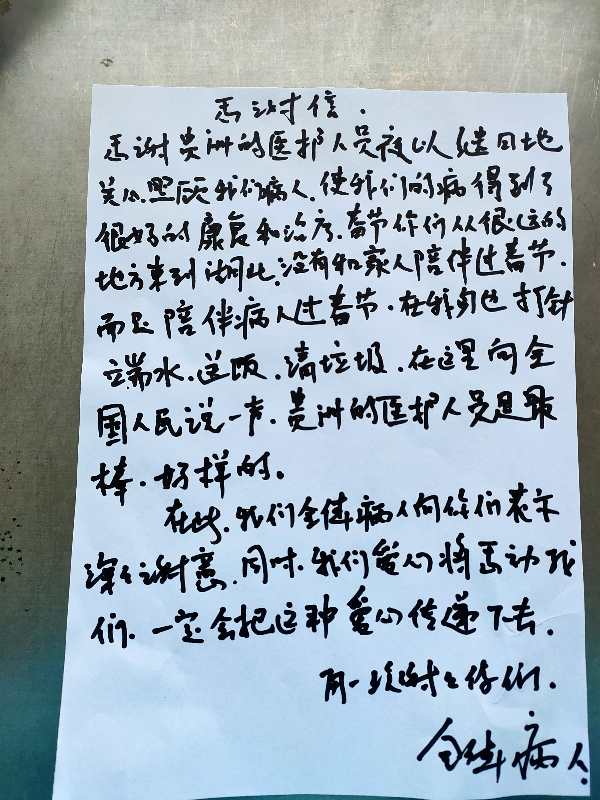 感谢信.
感谢贵洲的医护人员夜以继日地
关心.照顾我们病人.使我们的病得到了
很好的康复和治疗.春节你们从很远的
地方来到湖北.没有和家人陪伴过春节.
而是陪伴病人过春节.在我身边打针
端水.送饭.清垃圾.在这里向全
国人民说一声.贵洲的医护人员是最
棒.好样的.
在此.我们全体病人向你们表示
深深谢意.同时.我们爱心将感动我
们.一定会把这种爱心传递下去.
再一次谢谢你们.
全体病人.